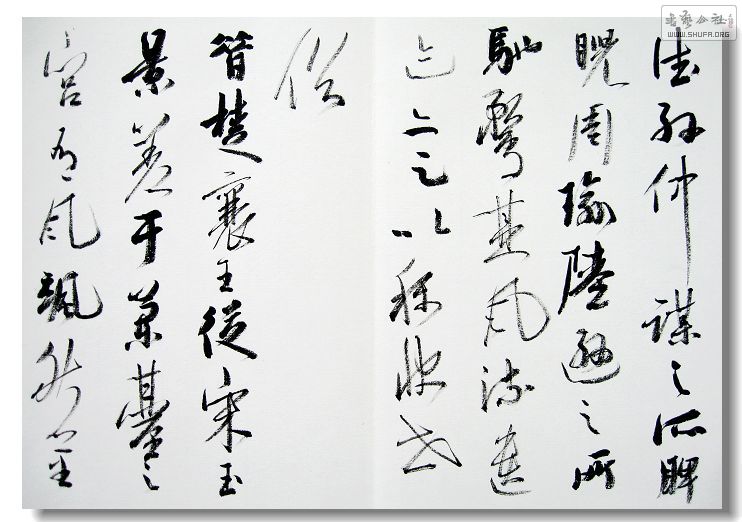 書藝公社
WWW.SHUFA.ORG
德孫仲謀之所睥
睨周瑜陸遜之所
馳騖其風流遺
迹亦足以稱快世
俗
昔楚襄王從宋玉
景差于蘭臺之
宮有風颯然至